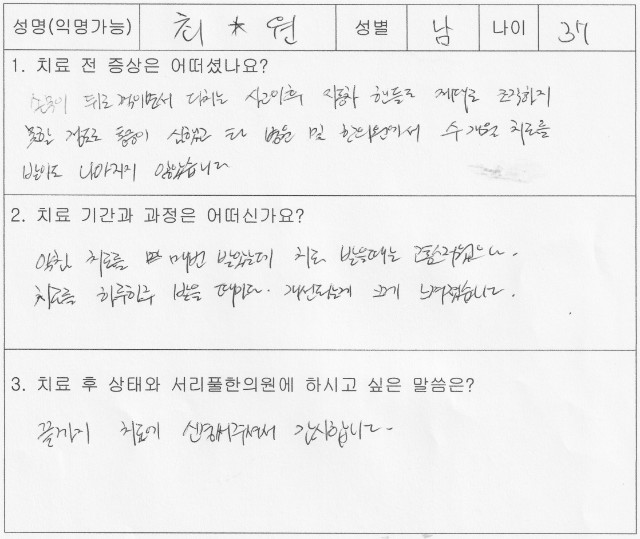 성명(익명가능) 최*원 성별 남 나이 37
1. 치료 전 증상은 어떠셨나요?
손목이 뒤로 꺽이면서 다치는 사고이후 자동차 핸들도 제대로 조작하지
못할 정도로 통증이 심했고 타 병원 및 한의원에서 수개월 치료를
받아도 나아지지 않았습니다
2. 치료 기간과 과정은 어떠신가요?
약침 치료를 매번 받았는데 치료 받을때는 고통스러웠으나.
치료를 하루하루 받을 때마다. 개선되는게 크게 느껴졌습니다.
3. 치료 후 상태와 서리풀한의원에 하시고 싶은 말씀은?
끝까지 치료에 신경써주셔서 감사합니다.